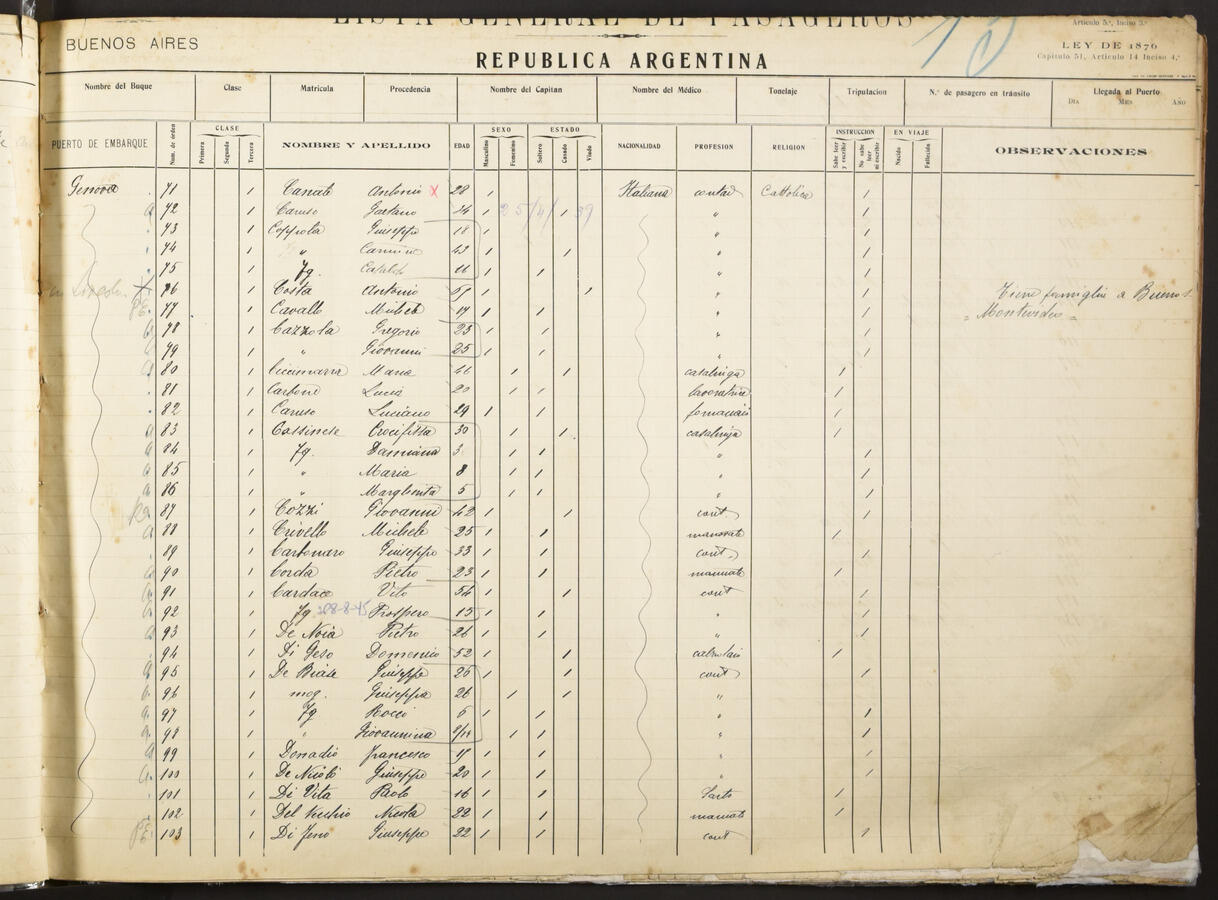 LISTA GENERAL DE PASAGEROS
BUENOS AIRES
REPUBLICA ARGENTINA
Artículo 5º, Inciso 3º
LEY DE 1876
Capítulo 51, Artículo 14 Inciso 4º
Nombre del Buque Clase Matrícula Procedencia Nombre del Capitan Nombre del Médico Tonelaje Tripulacion N.º de pasagero en tránsito Llegada al Puerto
DIA MES AÑO
PUERTO DE EMBARQUE Num. de órden CLASE Primera Segunda Tercera NOMBRE Y APELLIDO EDAD SEXO Masculino Femenino ESTADO Soltero Casado Viudo NACIONALIDAD PROFESION RELIGION INSTRUCCION Sabe leer y escribir No sabe leer ni escribir EN VIAJE Nacido Fallecido OBSERVACIONES
Genova 71 1 Antonio x 28 1 Italiana contad Cattolica 1
72 1 Caruso Gaetano 1 25/4/39 1 " 1
73 1 Coppola Giuseppe 18 1 " 1
74 1 " Carmine 43 1 1 " 1
75 1 fg. 1 1 " 1
76 1 Costa Antonio 1 1 " 1 Tiene famiglia a Buenos
77 1 Cavallo Michele 1 1 " 1 " Montevideo "
78 1 Cazzola Gregorio 25 1 " 1
79 1 " Giovanni 25 1 " 1
80 1 Maria 1 1 casalinga 1
81 1 Carbone Lucia 20 1 1 lavoratrice 1
82 1 Caruso Luciano 29 1 1 fornaciaio 1
83 1 Cassinese Crocifissa 30 1 1 casalinga 1
84 1 fg. Damiana 3 1 1 " 1
85 1 " Maria 8 1 1 " 1
86 1 " Margherita 5 1 1 " 1
87 1 Cozzi Giovanni 42 1 1 cont 1
88 1 Crivello Michele 25 1 1 manovale 1
89 1 Carbonaro Giuseppe 33 1 1 cont 1
90 1 Corda Pietro 23 1 1 1
91 1 Cardace Vito 54 1 1 cont 1
92 1 fg Prospero 15 1 1 " 1
93 1 De Noia Pietro 26 1 1 " 1
94 1 Di Geso Domenico 52 1 1 calzolaio 1
95 1 De Biase Giuseppe 26 1 1 cont 1
96 1 mog. Giuseppa 26 1 1 " 1
97 1 fg Rocco 6 1 1 " 1
98 1 " Giovannina 1 1 " 1
99 1 Donadio Francesco 17 1 1 " 1
100 1 De Nicolò Giuseppe 20 1 1 " 1
101 1 Di Vita Paolo 16 1 1 Sarto 1
102 1 Del Vecchio Nicola 22 1 1 1
103 1 Giuseppe 22 1 1 cont 1